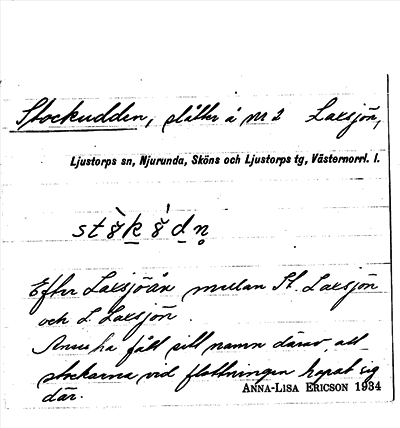 Stockudden, slåtter å nr 2 Laxsjön,
Ljustorps sn, Njurunda, Sköns och Ljustorps tg, Västernorrl. l.
Efter Laxsjöån mellan St. Laxsjön
och L. Laxsjön.
ha fått sitt namn därav, att
stockarna vid flottningen hopat sig
där.
ANNA-LISA ERICSON 1934